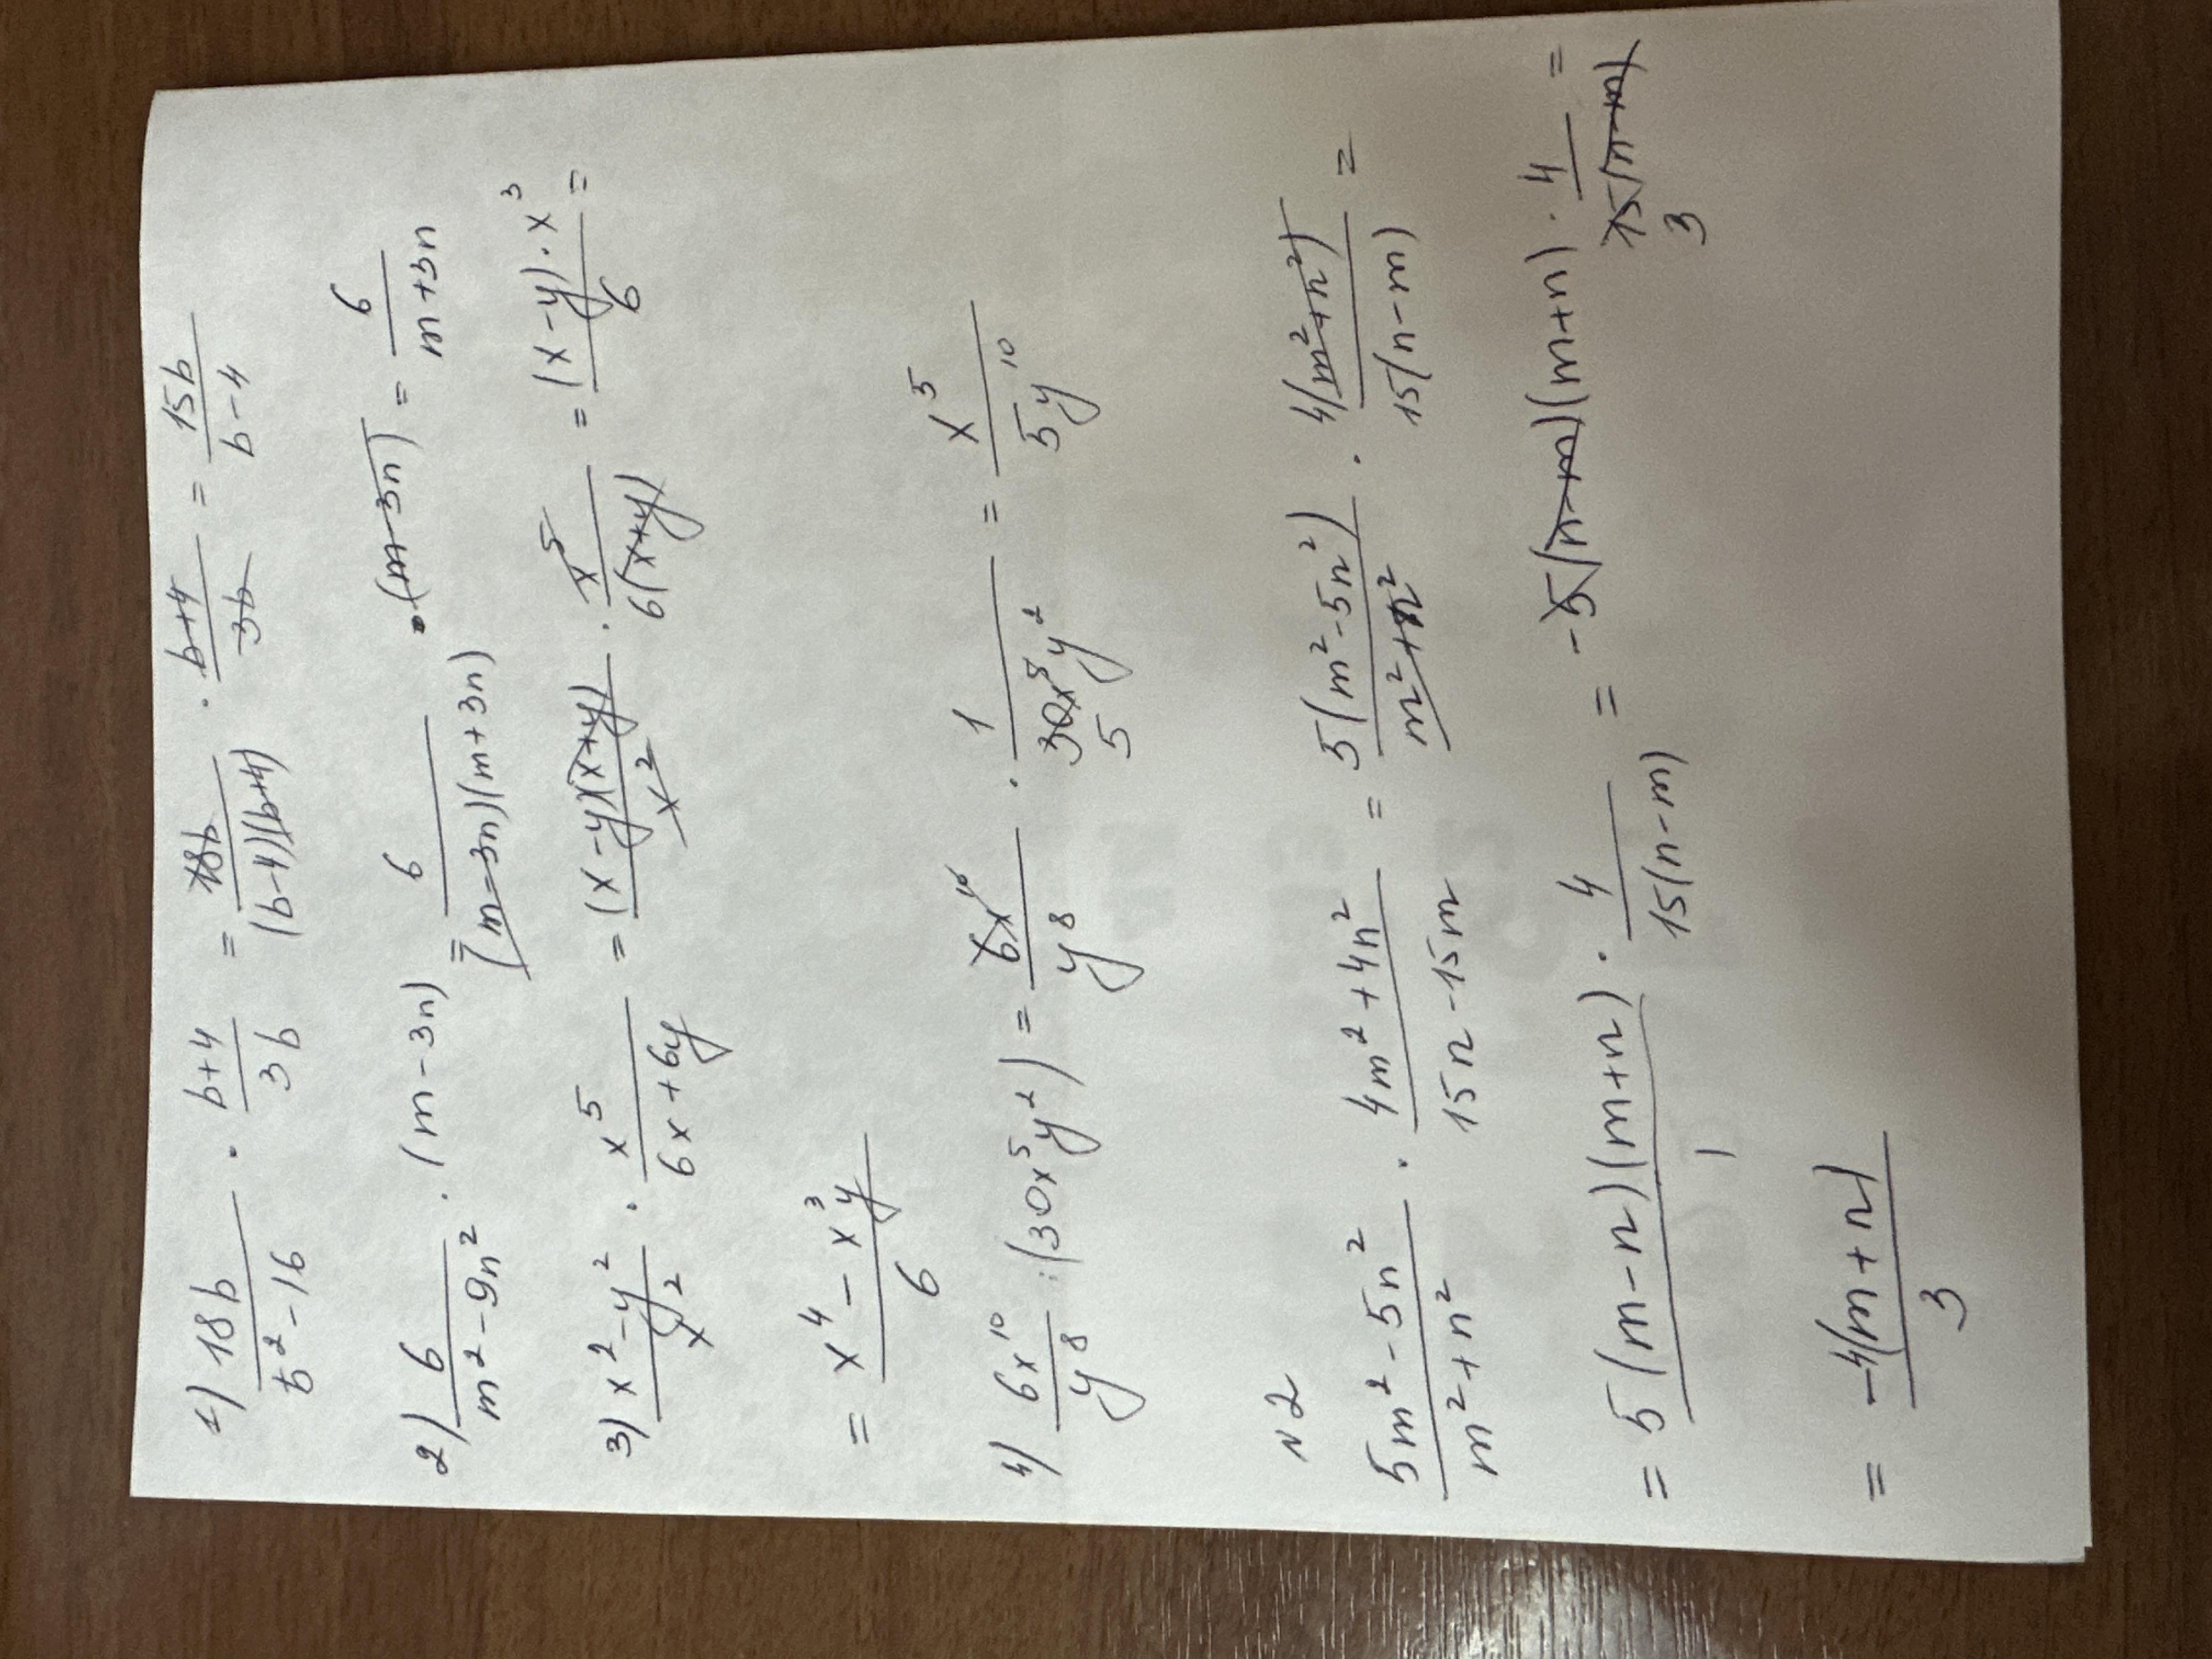 1) 18b/(b²-16) · (b+4)/(3b) = 18b/((b-4)(b+4)) · (b+4)/(3b) = 15b/(b-4)
2) 6/(m²-9n²) · (m-3n) = 6/((m-3n)(m+3n)) · (m-3n) = 6/(m+3n)
3) (x²-y²)/x² · x⁵/(6x+6y) = ((x-y)(x+y))/x² · x⁵/(6(x+y)) = ((x-y)·x³)/6 =
= (x⁴-x³y)/6
4) 6x¹⁰/y⁸ : (30x⁵y²) = 6x¹⁰/y⁸ · 1/(30x⁵y²) 5 = x⁵/(5y¹⁰)
N2
(5m²-5n²)/(m²+n²) · (4m²+4n²)/(15n-15m) = 5(m²-5n²)/(m²+n²) · 4(m²+n²)/(15(n-m)) =
= 5(m-n)(m+n)/1 · 4/(15(n-m)) = -5(n-m)(m+n) · 4/(15(n-m)) 3 =
= -4(m+n)/3